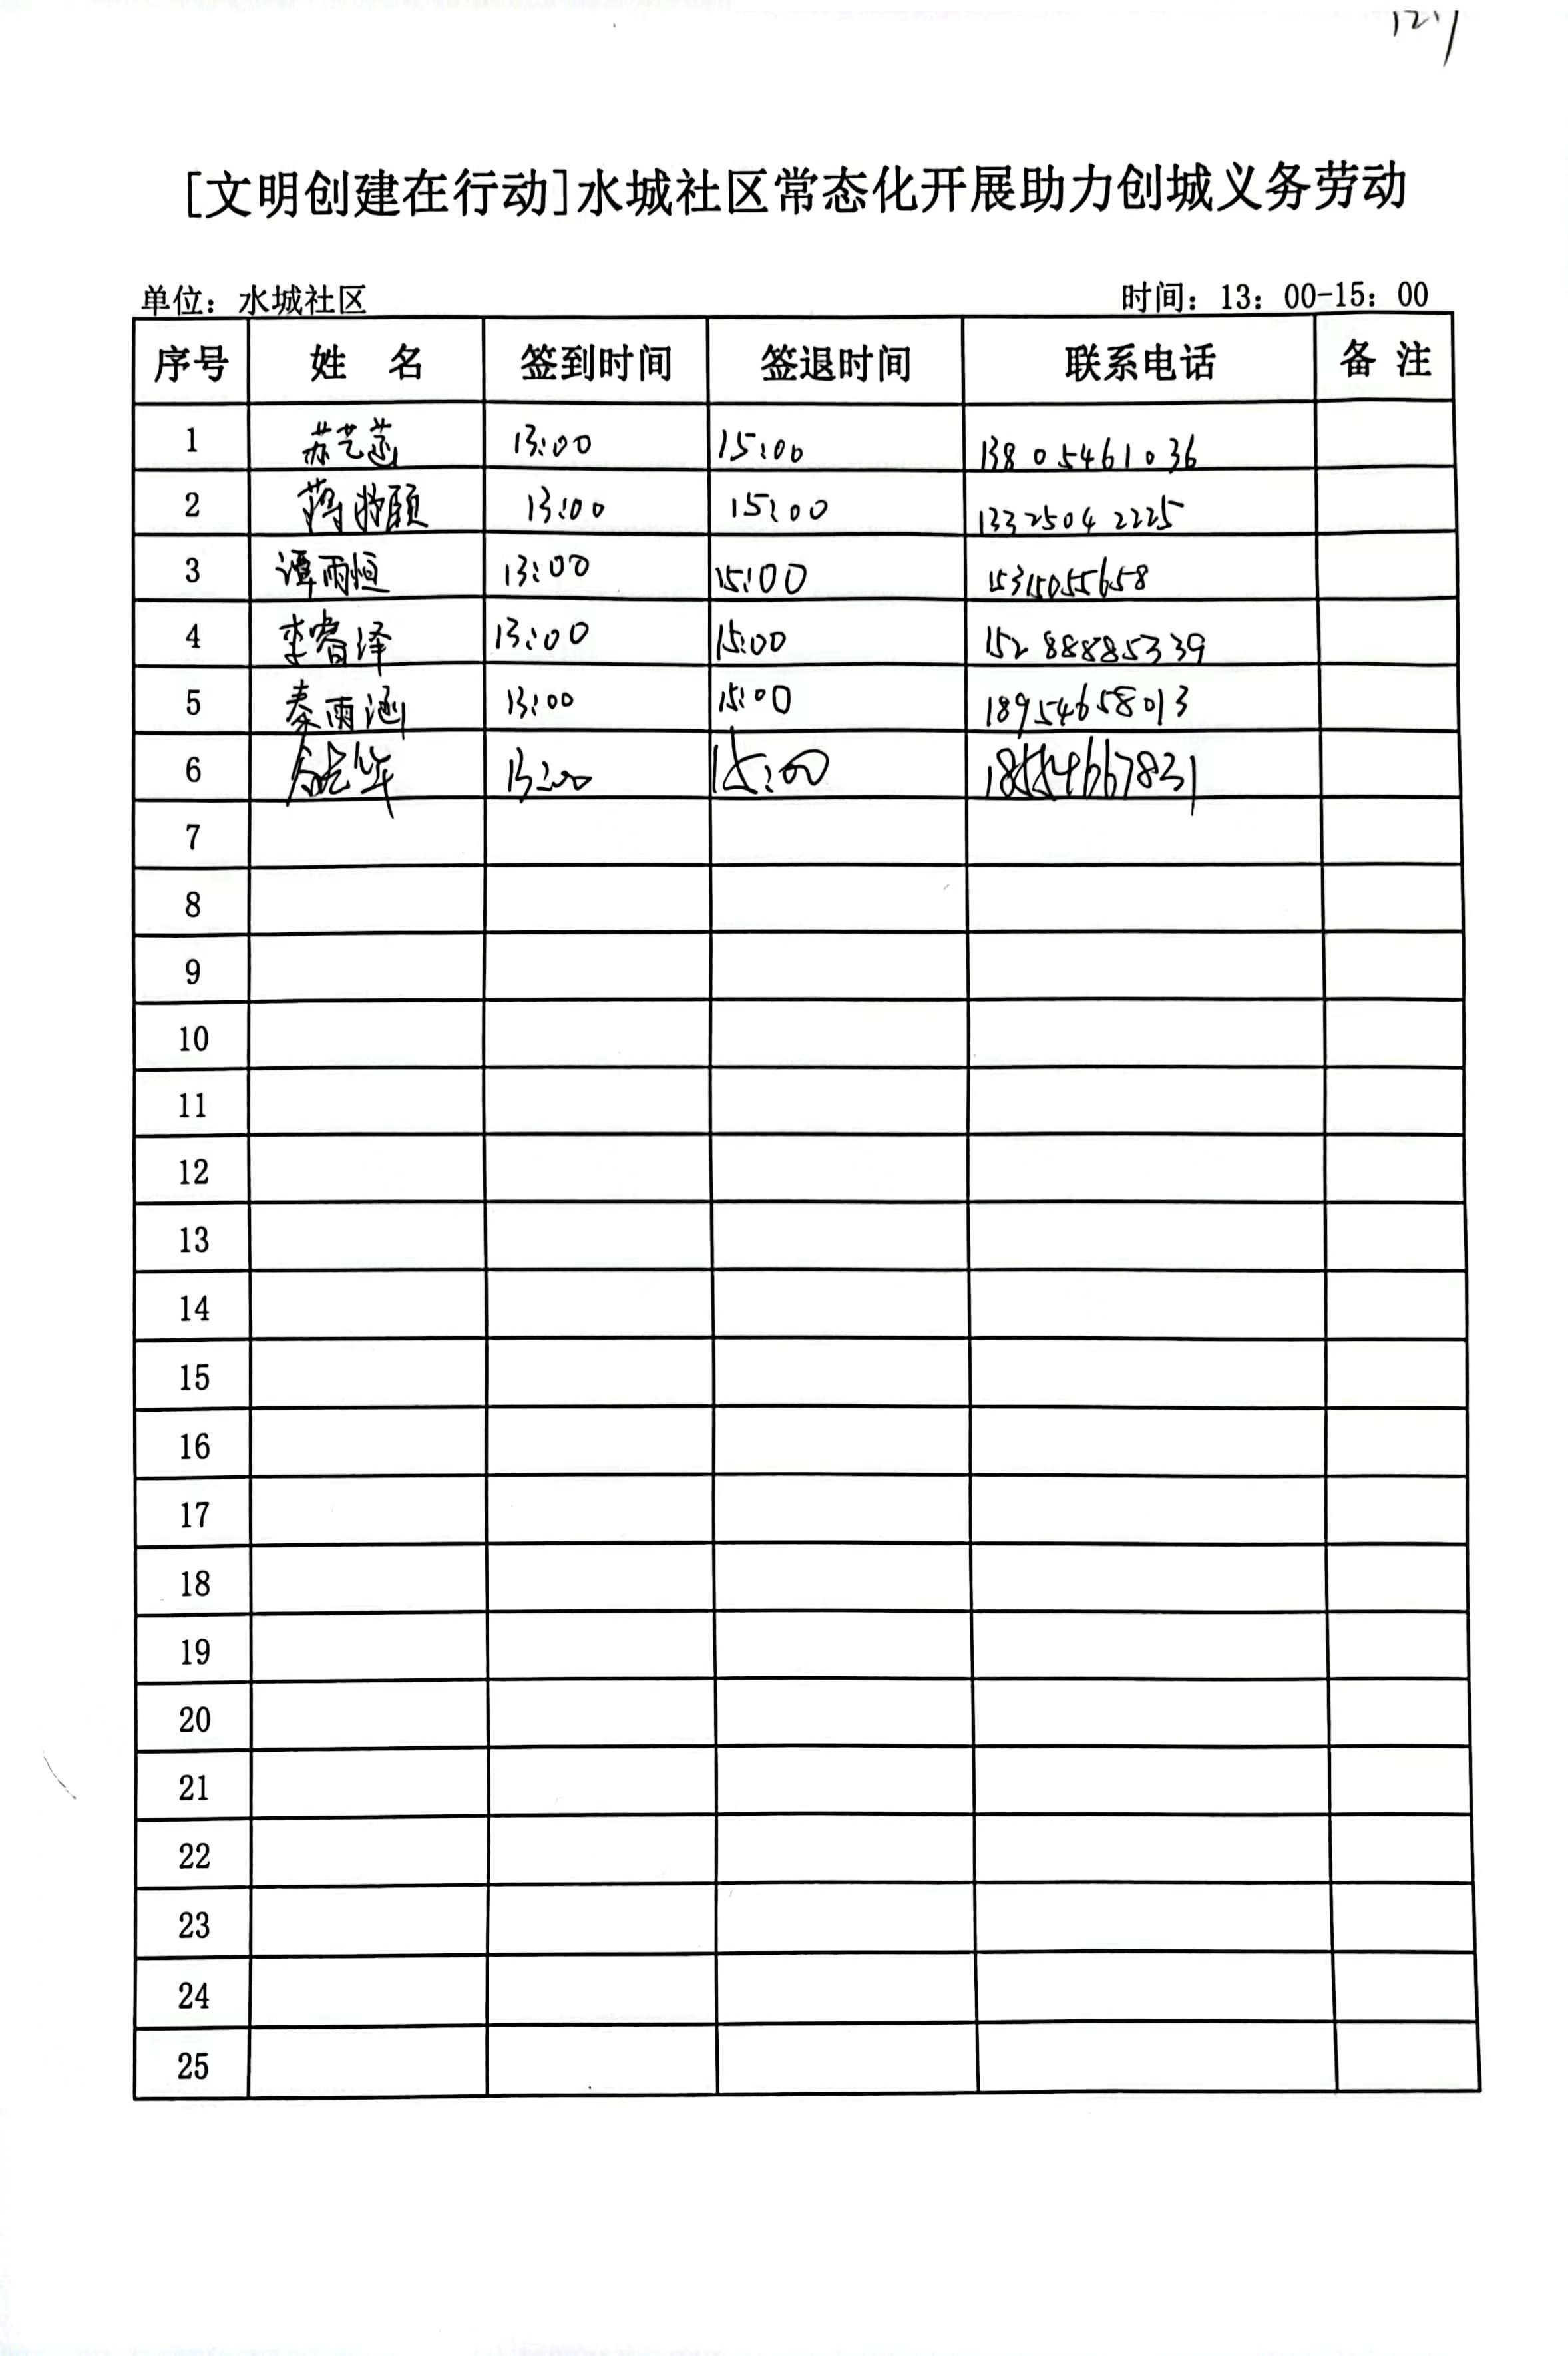 12.1
[文明创建在行动]水城社区常态化开展助力创城义务劳动
单位：水城社区 时间：13：00-15：00
序号 姓 名 签到时间 签退时间 联系电话 备 注
1 苏艺菡 13:00 15:00 13805461036
2 13:00 15:00 13325042225
3 谭雨恒 13:00 15:00 15315055658
4 李睿泽 13:00 15:00 15288885339
5 秦雨涵 13:00 15:00 18954658013
6 13:00 15:00 18554667831
7
8
9
10
11
12
13
14
15
16
17
18
19
20
21
22
23
24
25